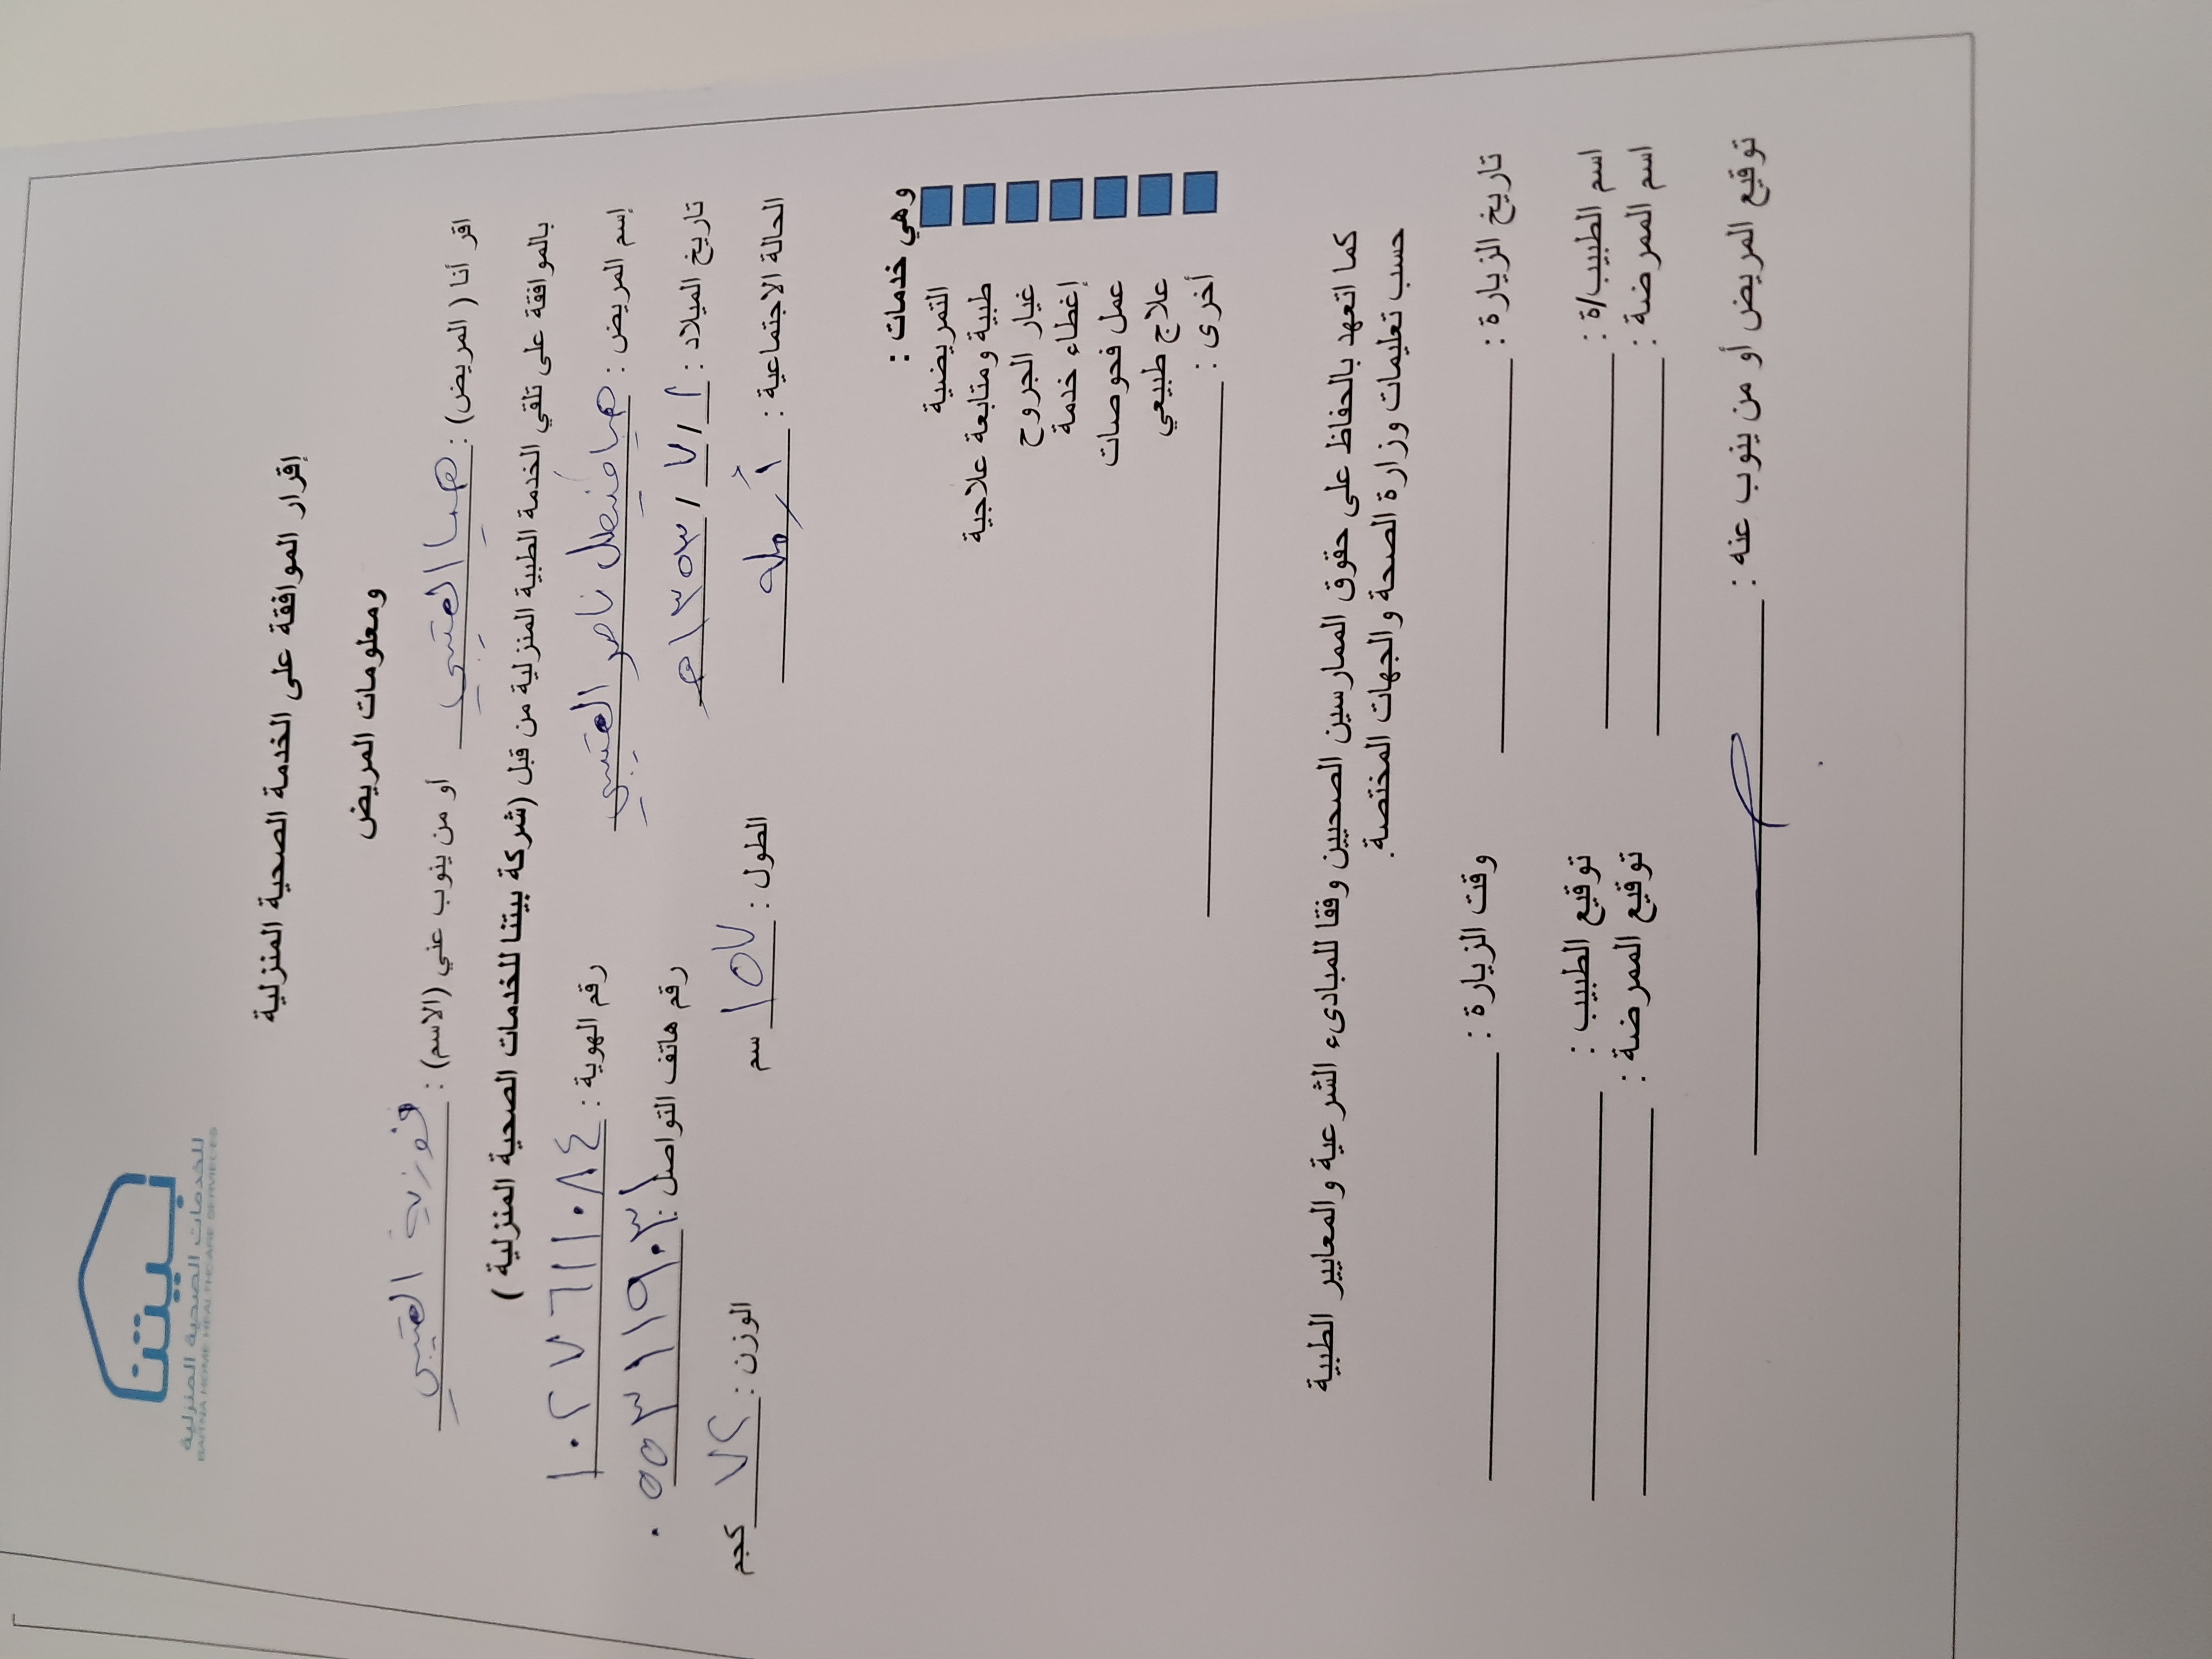 بيتنا
للخدمات الصحية المنزلية
BAITNA HOME HEALTHCARE SERVIECES
إقرار الموافقة على الخدمة الصحية المنزلية
ومعلومات المريض
اقر أنا ( المريض) : هيا العتيبي أو من ينوب عني (الاسم) : فوزية العتيبي
بالموافقة على تلقي الخدمة الطبية المنزلية من قبل (شركة بيتنا للخدمات الصحية المنزلية )
إسم المريض : هيا فيصل ناصر العتيبي رقم الهوية : ١٠٢٧٦١١٠٨٤
تاريخ الميلاد : ١ / ٧ / ١٣٥٣هـ رقم هاتف التواصل : ٠٥٥٣١١٩٠٣١
الحالة الاجتماعية : أرمله الطول : ١٥٧ سم الوزن : ٧٢ كجم
وهي خدمات :
التمريضية
طبية ومتابعة علاجية
غيار الجروح
إغطاء خدمة
عمل فحوصات
علاج طبيعي
أخرى :
كما اتعهد بالحفاظ على حقوق الممارسين الصحيين وفقا للمبادىء الشرعية والمعايير الطبية
حسب تعليمات وزارة الصحة والجهات المختصة.
تاريخ الزيارة : وقت الزيارة :
اسم الطبيب/ة : توقيع الطبيب :
اسم الممرضة : توقيع الممرضة :
توقيع المريض أو من ينوب عنه :